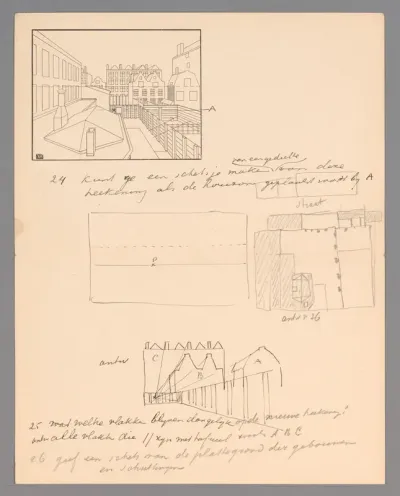 A
van een gedeelte
24 Kunt ge een schetsje maken van deze
teekening als de horizon geplaatst wordt bij A
straat
antw 26
antw
C
B
A
25 welke vlakken blijven de nieuwe teekening?
antw alle vlakken die // zijn met tafereel A B C
26 geef een schets van de plattegrond der gebouwen
en schuttingen